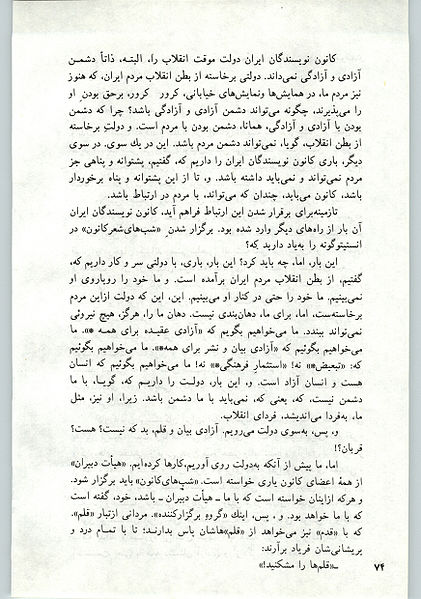 کانون نویسندگان ایران دولت موقت انقلاب را، البته، ذاتاً دشمن
آزادی و آزادگی نمی‌داند. دولتی برخاسته از بطن انقلاب مردم ایران، که هنوز
نیز مردم ما، در همایش‌ها ونمایش‌های خیابانی، کرور کرور، برحق بودن ِ او
را می‌پذیرند، چگونه می‌تواند دشمن آزادی و آزادگی باشد؟ چرا که دشمن
بودن با آزادی و آزادگی، همانا، دشمن بودن با مردم است. و دولتِ برخاسته
از بطن انقلاب، گویا، نمی‌تواند دشمن مردم باشد. این در یك سوی. در سوی
دیگر، باری کانون نویسندگان ایران را داریم که، گفتیم، پشتوانه و پناهی جز
مردم نمی‌تواند و نمی‌باید داشته باشد. و، تا از این پشتوانه و پناه برخوردار
باشد، می‌باید، چندان که می‌تواند، با مردم در ارتباط باشد.
تازمینه‌برای برقرار شدن این ارتباط فراهم آید، کانون نویسندگان ایران
آن بار از راه‌های دیگر وارد شده بود. برگزار شدن ِ «شب‌های‌شعرکانون» در
انستیتوگوته را به‌یاد دارید که؟
این بار، اما، چه باید کرد؟ این بار، باری، با دولتی سر و کار داریم که،
گفتیم، از بطن انقلاب مردم ایران برآمده است. و ما خود را رویاروی او
نمی‌بینیم. ما خود را حتی در کنار او می‌بینیم. این، این که دولت ازاین مردم
برخاسته‌ست، اما، برای ما، دهان‌بندی نیست. دهان ما را، هرگز، هیچ نیروئی
نمی‌تواند ببندد. ما می‌خواهیم بگویم که «آزادی عقیده برای همه *». ما
می‌خواهیم بگوئیم که «آزادی بیان و نشر برای همه*». ما می‌خواهیم بگوئیم
که: «تبعیض*» نه! «استثمار فرهنگی*» نه! ما می‌خواهیم بگوئیم که انسان
هست و انسان آزاد است. و، این بار، دولت را داریم که، گویا، با ما
دشمن نیست، که، یعنی که، نمی‌باید با ما دشمن باشد. زیرا، او نیز، مثل
ما، به‌فردا می‌اندیشد، فردای انقلاب.
و، پس، به‌سوی دولت می‌رویم. آزادی بیان و قلم، بد که نیست؟ هست؟
قربان؟!
اما، ما پیش از آنکه به‌دولت روی آوریم،کارها کرده‌ایم. «هیأت دبیران»
از همهٔ اعضای کانون یاری خواسته است. «شب‌های‌کانون» باید برگزار شود.
و هرکه ازاینان خواسته است که با ما ــ هیأت دبیران ــ باشد، خود، گفته است
که با ما خواهد بود. و ، پس، اینك «گروهِ برگزارکننده». مردانی ازتبار «قلم»،
که با «قدم» نیز می‌خواهد از «قلم»هاشان پاس بدارند؛ تا با تمام درد و
پریشانی‌شان فریاد برآرند:
ــ«قلم‌ها را مشکنید!»
۷۴